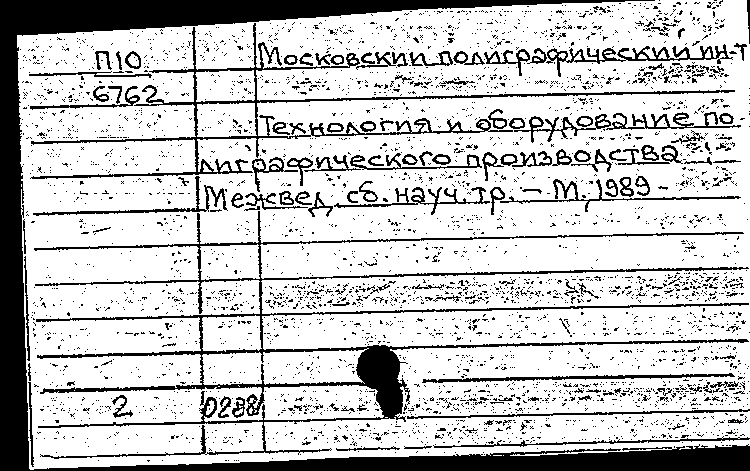 П10 Московский полиграфический ин-т
6762
Технология и оборудование по-
лиграфического производства
Межвед. сб. науч. тр. – М., 1989 -
2